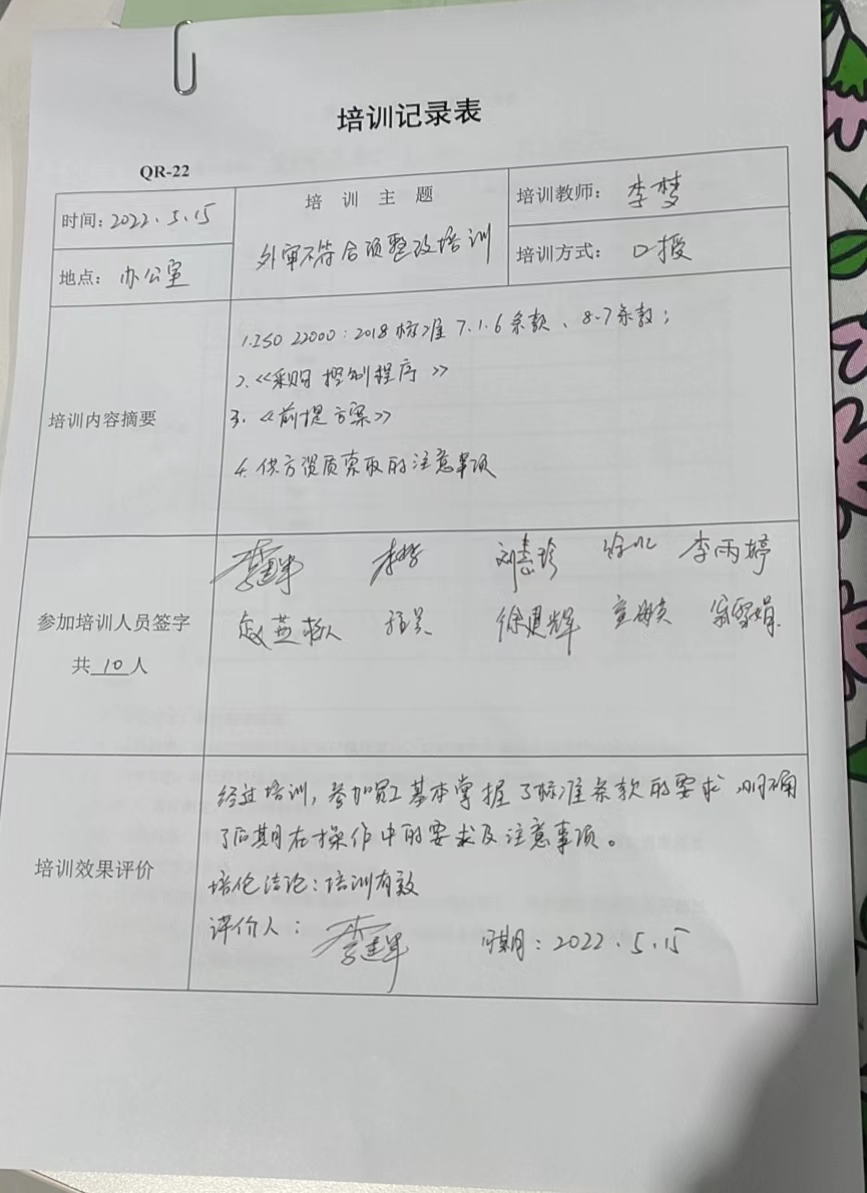 培训记录表
QR-22
时间：2022.5.15
培训主题
培训教师：李梦
地点：办公室
外审不符合项整改培训
培训方式：口授
培训内容摘要
1.ISO 22000：2018标准 7.1.6条款、8.7条款；
2.《采购控制程序》
3.《前提方案》
4.供方资质索取的注意事项
参加培训人员签字
共10人
刘志珍 李雨婷
培训效果评价
经过培训，参加员工基本掌握了标准条款的要求，明确
了后期在操作中的要求及注意事项。
结论：培训有效
评价人：
日期：2022.5.15